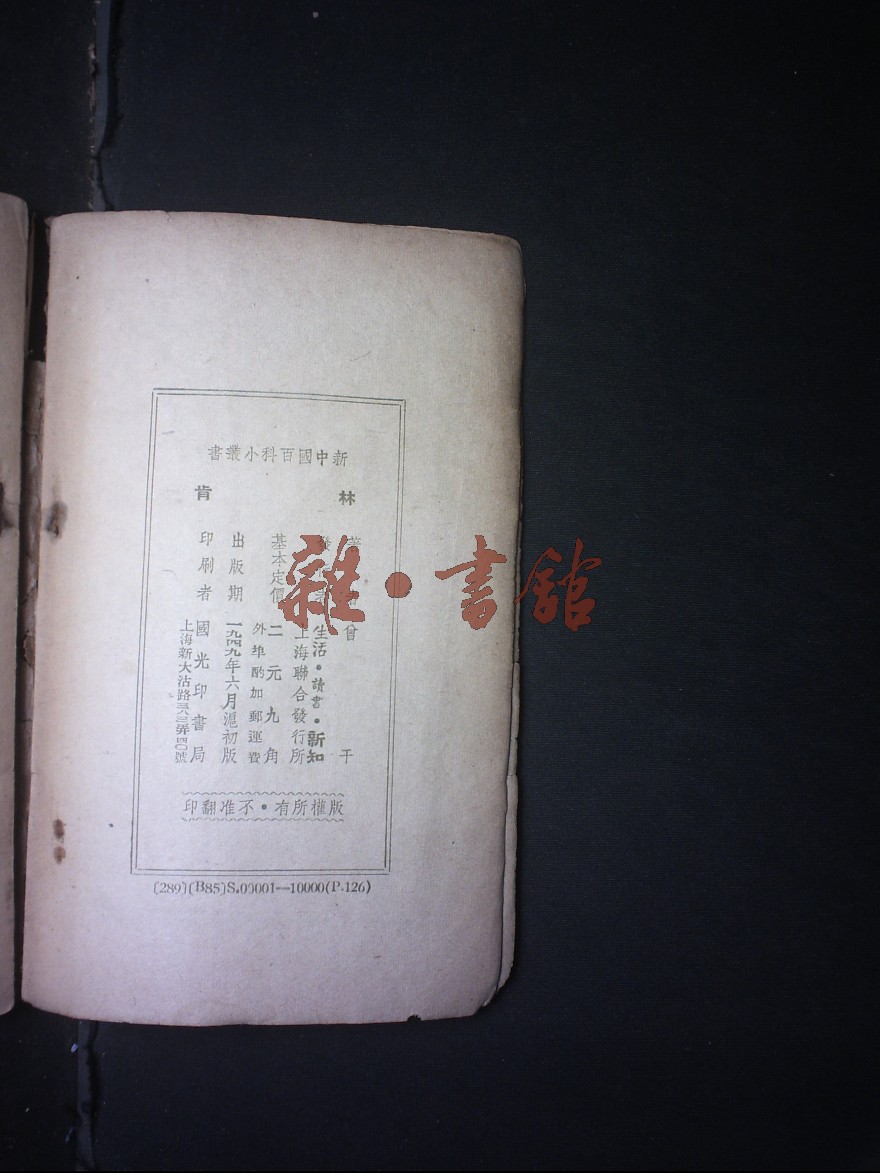 新中國百科小叢書
林肯
著 曾干
發 生活·讀書·新知
上海聯合發行所
基本定價 二元九角
外埠酌加郵運費
出版期 一九四九年六月滬初版
印刷者 國光印書局
上海新大沽路
版權所有·不准翻印
(289)(B85)S.00001—10000(P.126)
雜·書館